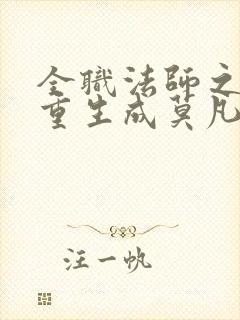 全職法師之
重生成莫凡
汪一帆